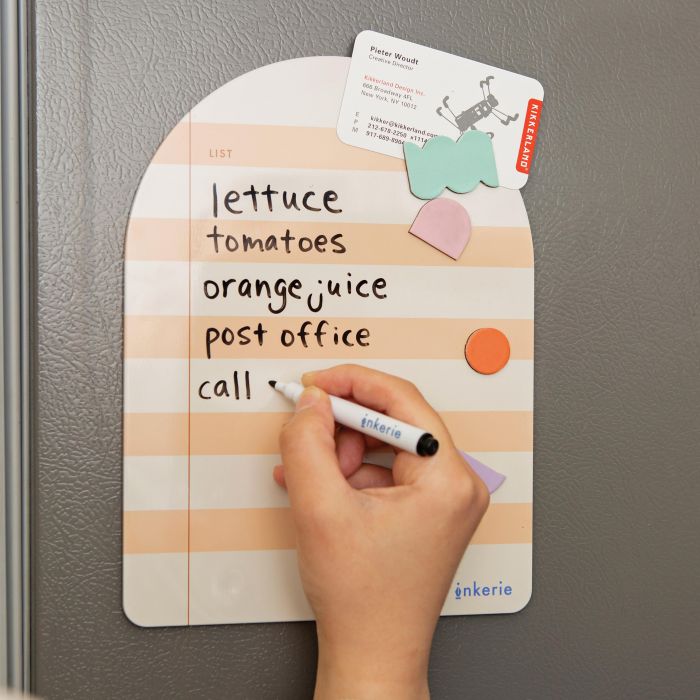 Pieter Woudt
Creative Director
Kikkerland Design Inc.
666 Broadway 4FL
New York, NY 10012
E kikker@kikkerland.com
P 212-678-2250 x114
M 917-689-890
KIKKERLAND
LIST
lettuce
tomatoes
orange juice
post office
call
inkerie
inkerie